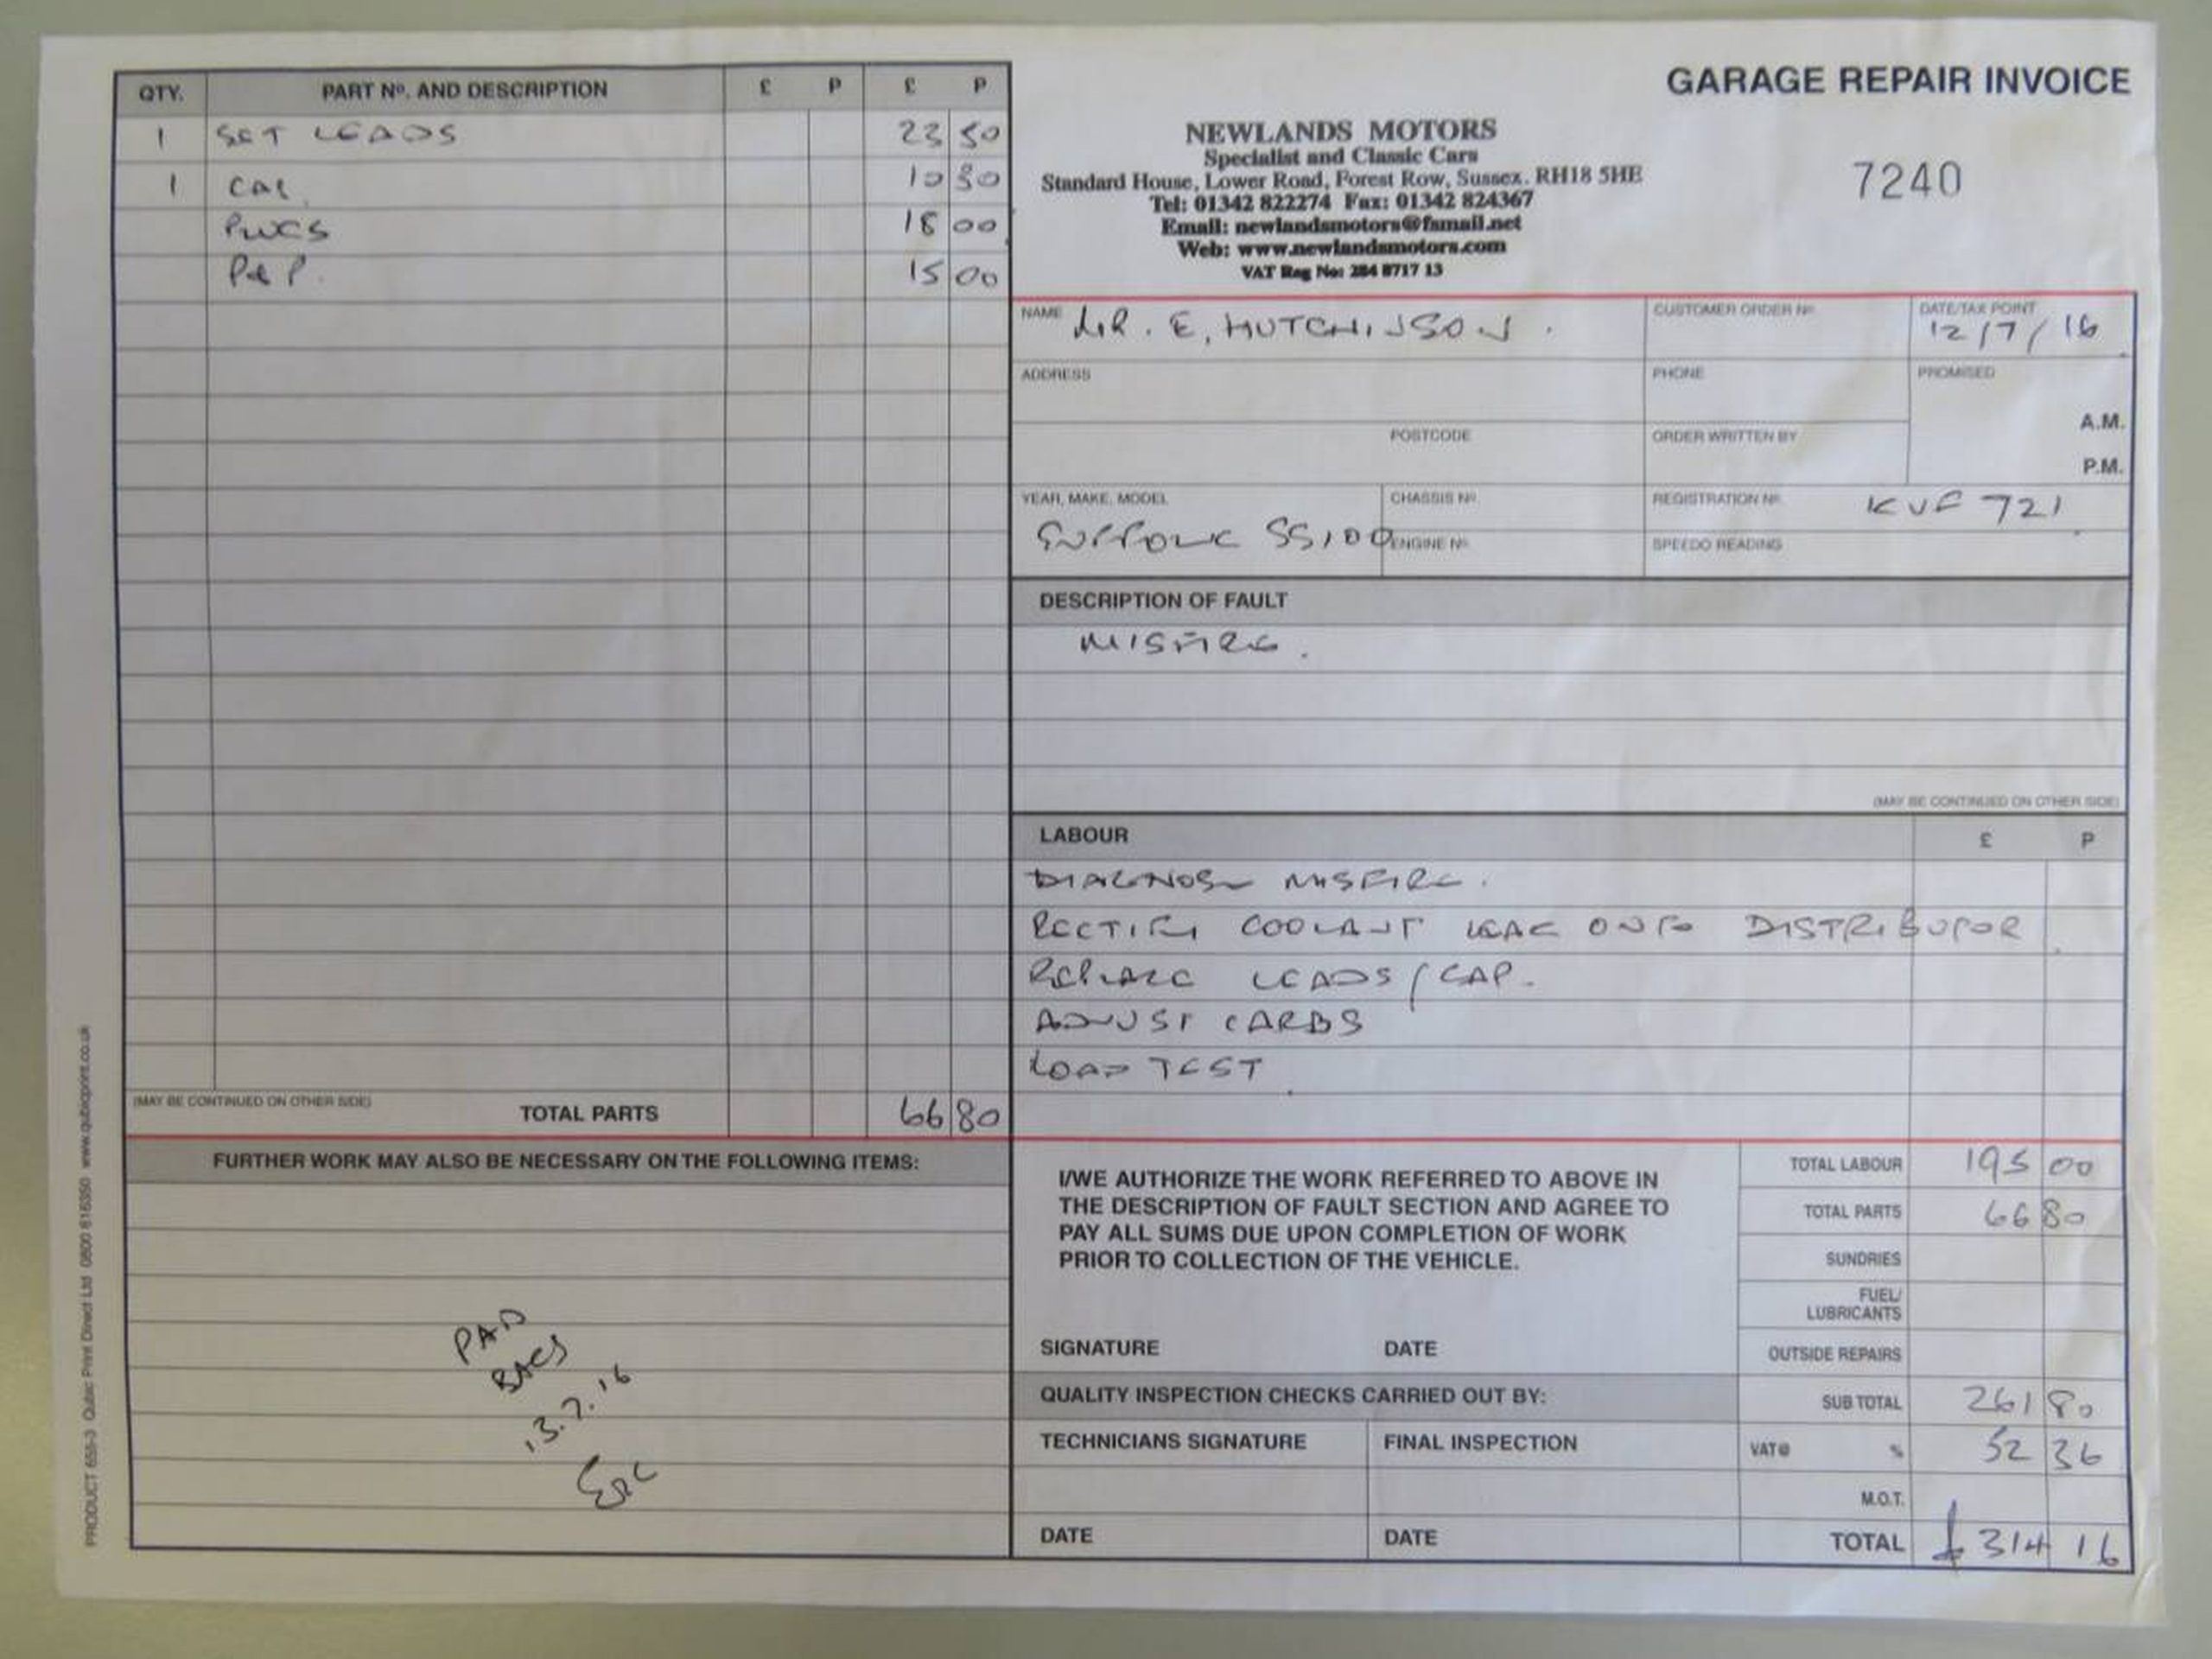 GARAGE REPAIR INVOICE
7240
NEWLANDS MOTORS
Specialist and Classic Cars
Standard House, Lower Road, Forest Row, Sussex. RH18 5HE
Tel: 01342 822274 Fax: 01342 824367
Email: newlandsmotors@fsmail.net
Web: www.newlandsmotors.com
VAT Reg No: 284 8717 13
QTY. PART Nº. AND DESCRIPTION £ P £ P
1 SET LEADS 23 50
1 CAP 10 30
PLUGS 18 00
P&P. 15 00
(MAY BE CONTINUED ON OTHER SIDE) TOTAL PARTS 66 80
FURTHER WORK MAY ALSO BE NECESSARY ON THE FOLLOWING ITEMS:
PAID
BACS
13.7.16
NAME MR. E. HUTCHINSON. CUSTOMER ORDER Nº. DATE/TAX POINT 12/7/16
ADDRESS PHONE PROMISED
A.M.
POSTCODE ORDER WRITTEN BY
P.M.
YEAR, MAKE, MODEL CHASSIS Nº. REGISTRATION Nº. KVF 721
SUFFOLK SS100 ENGINE Nº. SPEEDO READING
DESCRIPTION OF FAULT
MISFIRE.
(MAY BE CONTINUED ON OTHER SIDE)
LABOUR £ P
DIAGNOSE MISFIRE.
RECTIFY COOLANT LEAK ONTO DISTRIBUTOR
REPLACE LEADS/CAP.
ADJUST CARBS
ROAD TEST
I/WE AUTHORIZE THE WORK REFERRED TO ABOVE IN
THE DESCRIPTION OF FAULT SECTION AND AGREE TO
PAY ALL SUMS DUE UPON COMPLETION OF WORK
PRIOR TO COLLECTION OF THE VEHICLE.
SIGNATURE DATE
QUALITY INSPECTION CHECKS CARRIED OUT BY:
TECHNICIANS SIGNATURE FINAL INSPECTION
DATE DATE
TOTAL LABOUR 195 00
TOTAL PARTS 66 80
SUNDRIES
FUEL/
LUBRICANTS
OUTSIDE REPAIRS
SUB TOTAL 261 80
VAT@ % 52 36
M.O.T.
TOTAL £314 16
PRODUCT 655-3 Qubic Print Direct Ltd 0800 616350 www.qubicprint.co.uk